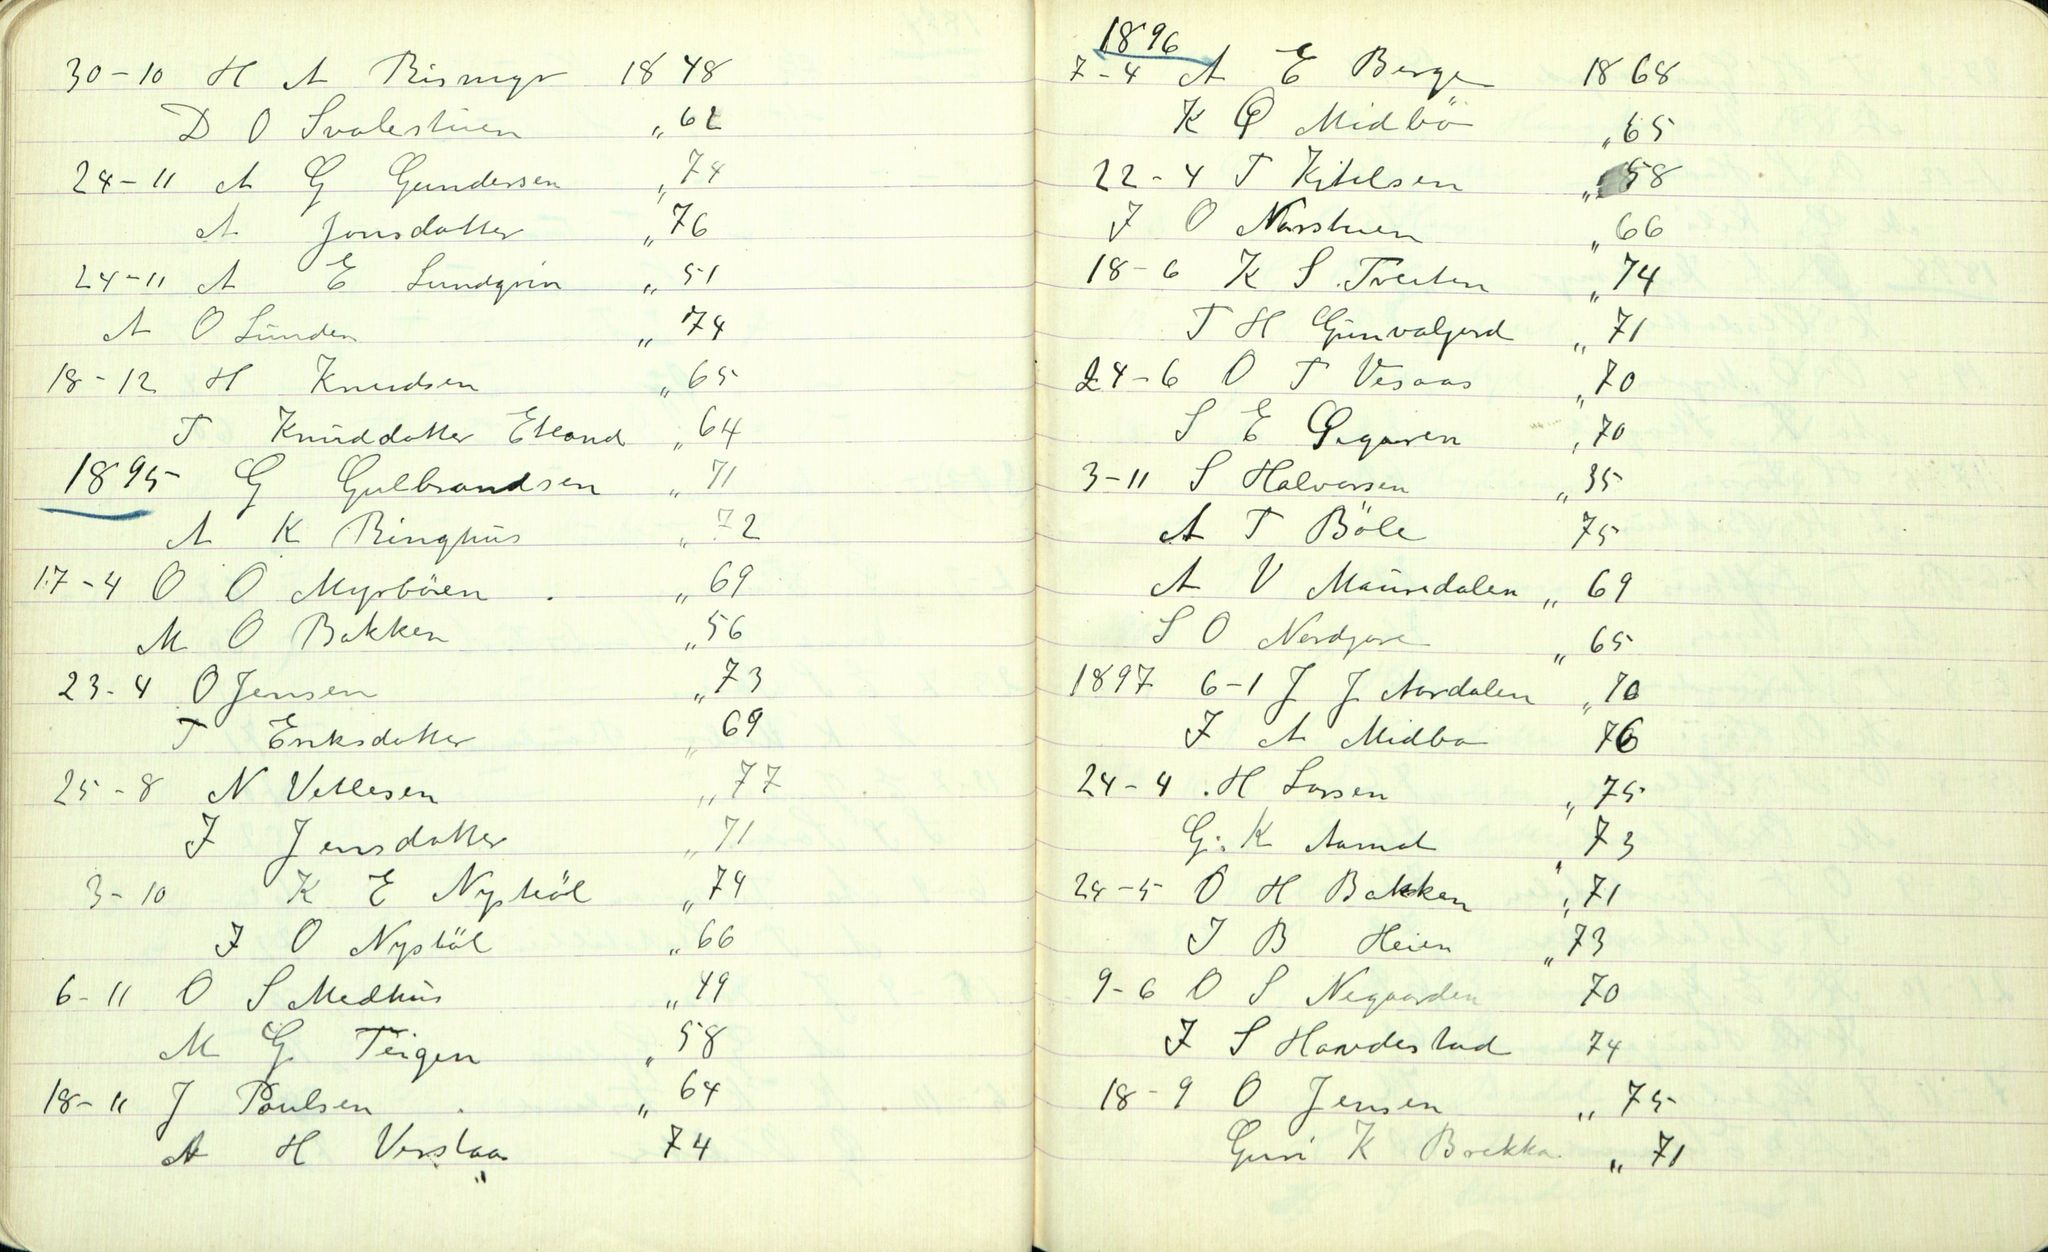 30-10 H A Rismyr 1848
D O Svalestuen „ 62
24-11 A G Gundersen „ 74
A Jonsdatter „ 76
24-11 A E Lundgrin „ 51
A O Lunden „ 74
18-12 H Knudsen „ 65
T Knuddatter Etland „ 64
1895 G Gulbrandsen „ 71
A K Ringhus „ 72
17-4 O O Myrböen „ 69
M O Bakken „ 56
23-4 O Jensen „ 73
T Eriksdatter „ 69
25-8 N Vetlesen „ 77
J Jensdatter „ 71
3-10 K E Nystöl „ 74
J O Nystöl „ 66
6-11 O S Medhus „ 49
M G Teigen „ 58
18-11 J Poulsen „ 64
A H Verslaa „ 74
1896
7-4 A E Berge 1868
K O Midbö „ 65
22-4 T Kitilsen „ 58
J O Norstuen „ 66
18-6 K S Treiten „ 74
T H Gunvaljord „ 71
24-6 O T Vesaas „ 70
S E „ 70
3-11 S Halvorsen „ 35
A T Böle 75
A V Maurdalen „ 69
S O Nordgare „ 65
1897 6-1 J J Aardalen „ 70
J A Midbo 76
24-4 H Larsen „ 75
G. K Aamot „ 73
24-5 O H Bakken „ 71
J B Heien „ 73
9-6 O S Negaarden 70
J S Handestad 74
18-9 O Jensen „ 75
Guri K Brekka „ 71